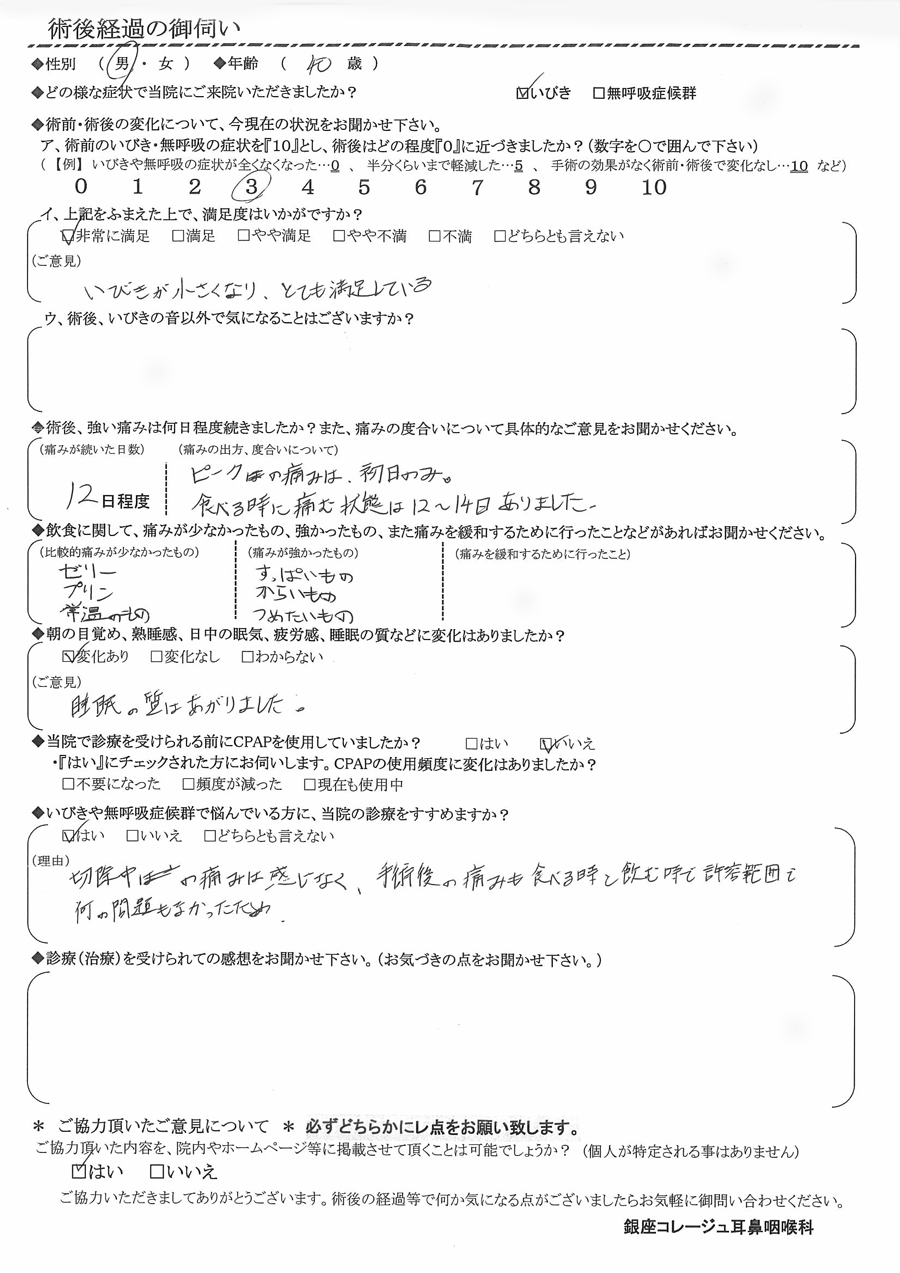 術後経過の御伺い
◆性別 ( 男 ・ 女 ) ◆年齢 ( 40 歳 )
◆どの様な症状で当院にご来院いただきましたか? ☑いびき □無呼吸症候群
◆術前・術後の変化について、今現在の状況をお聞かせ下さい。
ア、術前のいびき・無呼吸の症状を『10』とし、術後はどの程度『0』に近づきましたか?(数字を〇で囲んで下さい)
(【例】いびきや無呼吸の症状が全くなくなった…0 、 半分くらいまで軽減した…5 、 手術の効果がなく術前・術後で変化なし…10 など)
0 1 2 3 4 5 6 7 8 9 10
イ、上記をふまえた上で、満足度はいかがですか?
☑非常に満足 □満足 □やや満足 □やや不満 □不満 □どちらとも言えない
(ご意見)
いびきが小さくなり、とても満足している
ウ、術後、いびきの音以外で気になることはございますか?
◆術後、強い痛みは何日程度続きましたか?また、痛みの度合いについて具体的なご意見をお聞かせください。
(痛みが続いた日数) (痛みの出方、度合いについて)
ピークの痛みは、初日のみ。
12日程度 食べる時に痛む状態は12〜14日ありました。
◆飲食に関して、痛みが少なかったもの、強かったもの、また痛みを緩和するために行ったことなどがあればお聞かせください。
(比較的痛みが少なかったもの) (痛みが強かったもの) (痛みを緩和するために行ったこと)
ゼリー すっぱいもの
プリン からいもの
常温のもの つめたいもの
◆朝の目覚め、熟睡感、日中の眠気、疲労感、睡眠の質などに変化はありましたか?
☑変化あり □変化なし □わからない
(ご意見)
睡眠の質はあがりました。
◆当院で診療を受けられる前にCPAPを使用していましたか? □はい ☑いいえ
・『はい』にチェックされた方にお伺いします。CPAPの使用頻度に変化はありましたか?
□不要になった □頻度が減った □現在も使用中
◆いびきや無呼吸症候群で悩んでいる方に、当院の診療をすすめますか?
☑はい □いいえ □どちらとも言えない
(理由)
切除中の痛みは感じなく、手術後の痛みも食べる時と飲む時で許容範囲で
何の問題もなかったため.
◆診療(治療)を受けられての感想をお聞かせ下さい。(お気づきの点をお聞かせ下さい。)
＊ ご協力頂いたご意見について ＊ 必ずどちらかにレ点をお願い致します。
ご協力頂いた内容を、院内やホームページ等に掲載させて頂くことは可能でしょうか? (個人が特定される事はありません)
☑はい □いいえ
ご協力いただきましてありがとうございます。術後の経過等で何か気になる点がございましたらお気軽に御問い合わせください。
銀座コレージュ耳鼻咽喉科